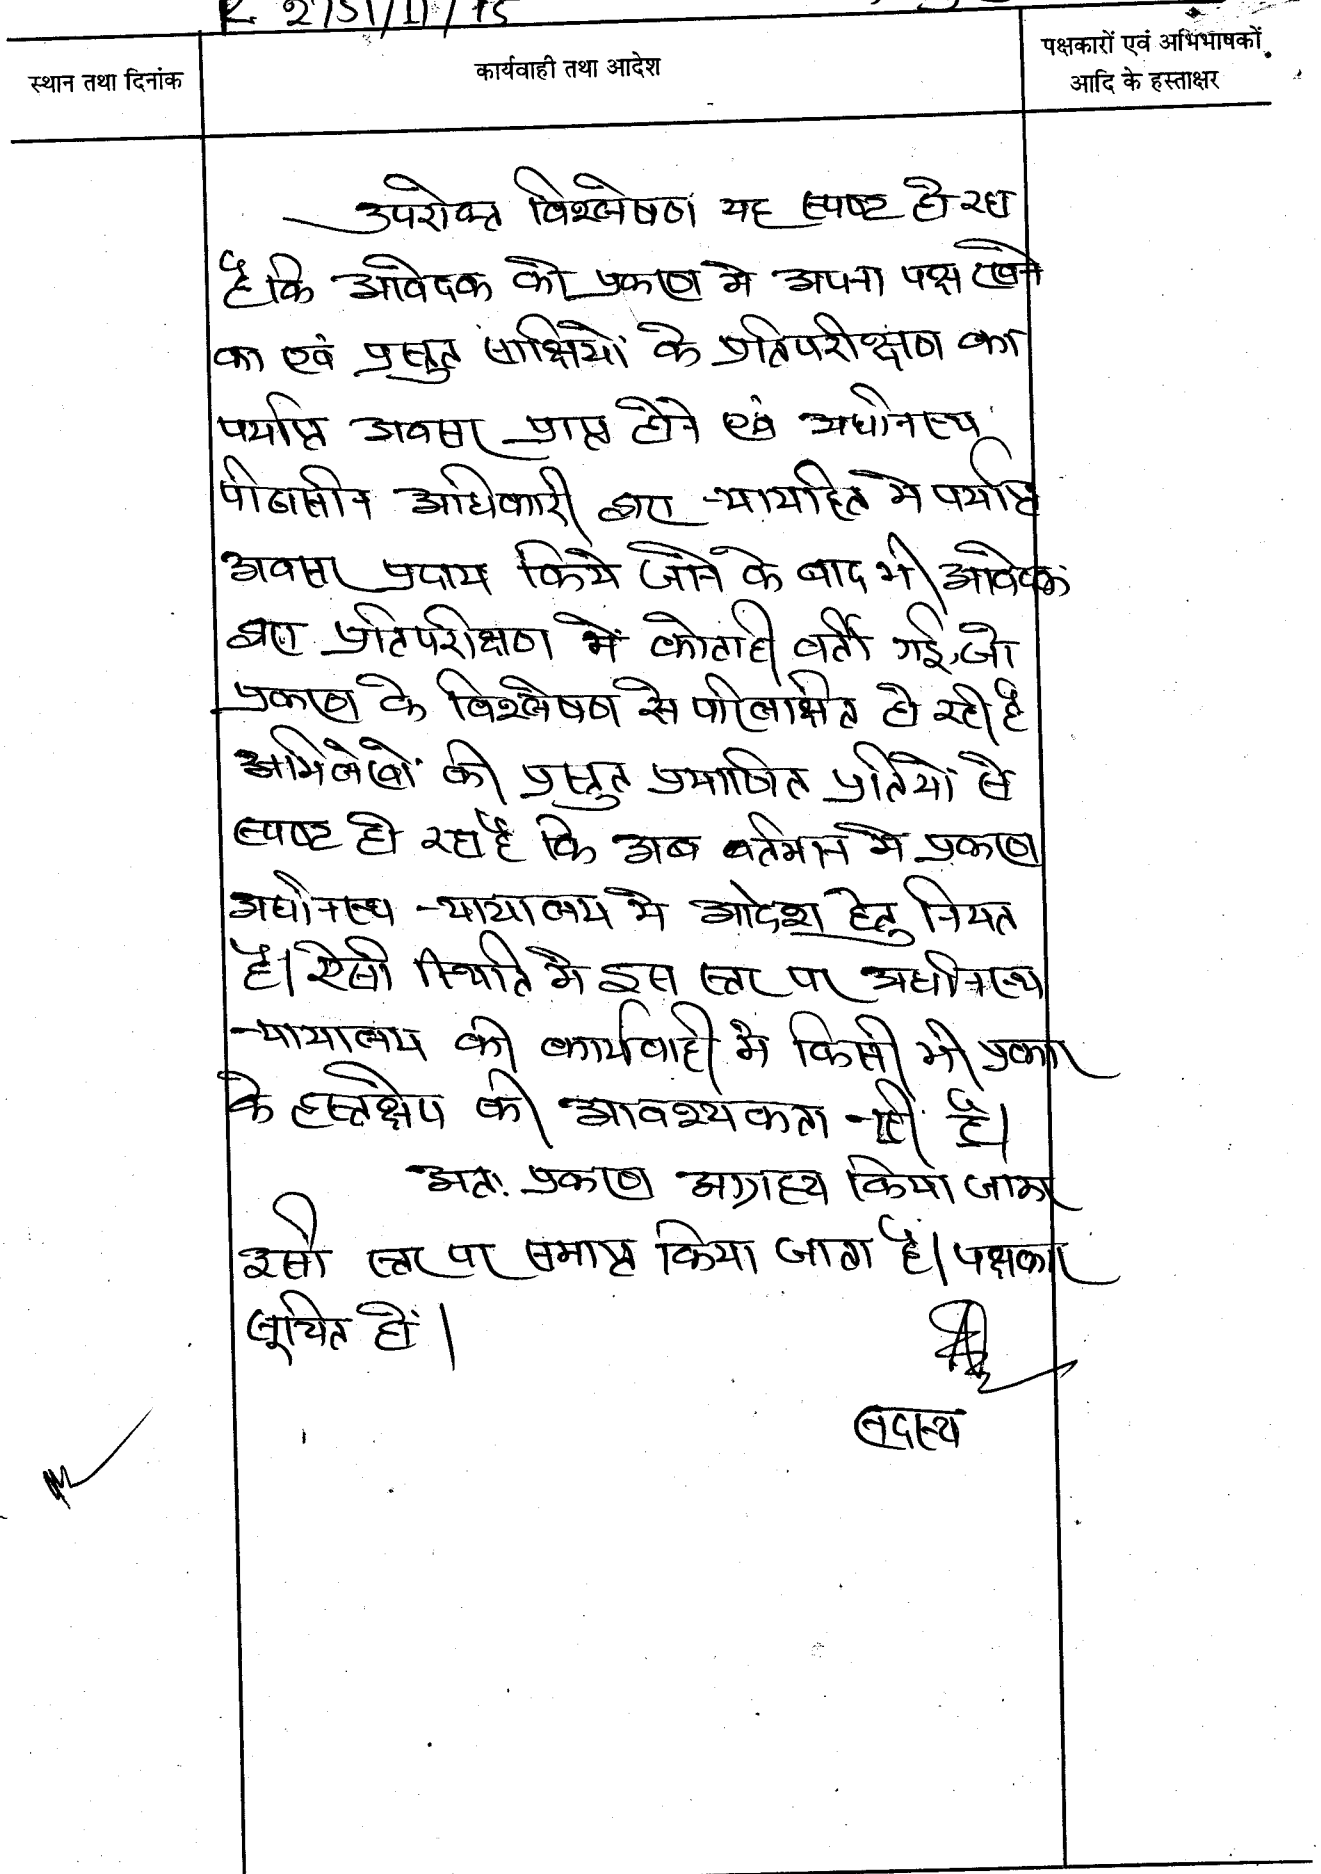 स्थान तथा दिनांक
कार्यवाही तथा आदेश
पक्षकारों एवं अभिभाषकों
आदि के हस्ताक्षर
उपरोक्त विश्लेषण यह स्पष्ट हो रहा
है कि आवेदक को प्रकरण मे अपना पक्ष रखने
का एवं प्रस्तुत साक्षियों के प्रतिपरीक्षण का
पर्याप्त अवसर प्राप्त होने एवं अधीनस्थ
पीठासीन अधिकारी द्वारा न्यायहित मे पर्याप्त
अवसर प्रदाय किये जाने के बाद भी आवेदक
द्वारा प्रतिपरीक्षण में कोताही बर्ती गई, जो
प्रकरण के विश्लेषण से परिलक्षित हो रही है
अभिलेखों की प्रस्तुत प्रमाणित प्रतियों से
स्पष्ट हो रहा है कि अब वर्तमान मे प्रकरण
अधीनस्थ न्यायालय मे आदेश हेतु नियत
है। ऐसी स्थिति मे इस स्तर पर अधीनस्थ
न्यायालय की कार्यवाही मे किसी भी प्रकार
के हस्तक्षेप की आवश्यकता नहीं है।
अतः प्रकरण अग्राह्य किया जाकर
इसी स्तर पर समाप्त किया जाता है। पक्षकार
सूचित हों।
सदस्य